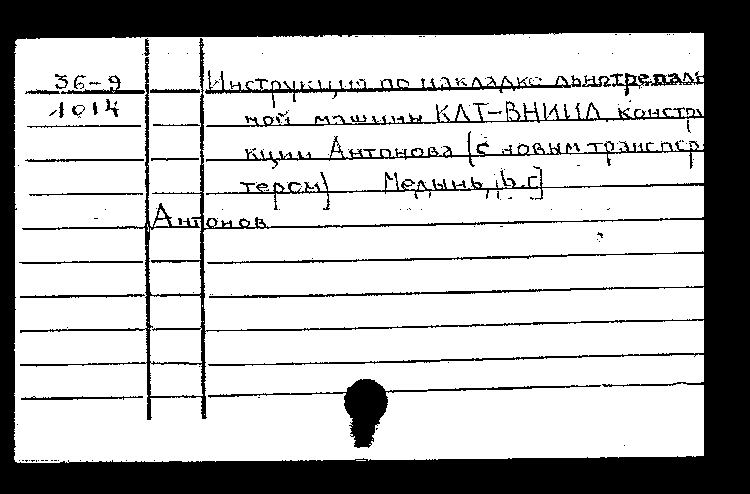 36-9 Инструкция по накладке льнотрепаль
1014 ной машины КЛТ-ВНИИЛ констру
кции Антонова (с новым транспор
тером) Медынь, b.г]
Антонов